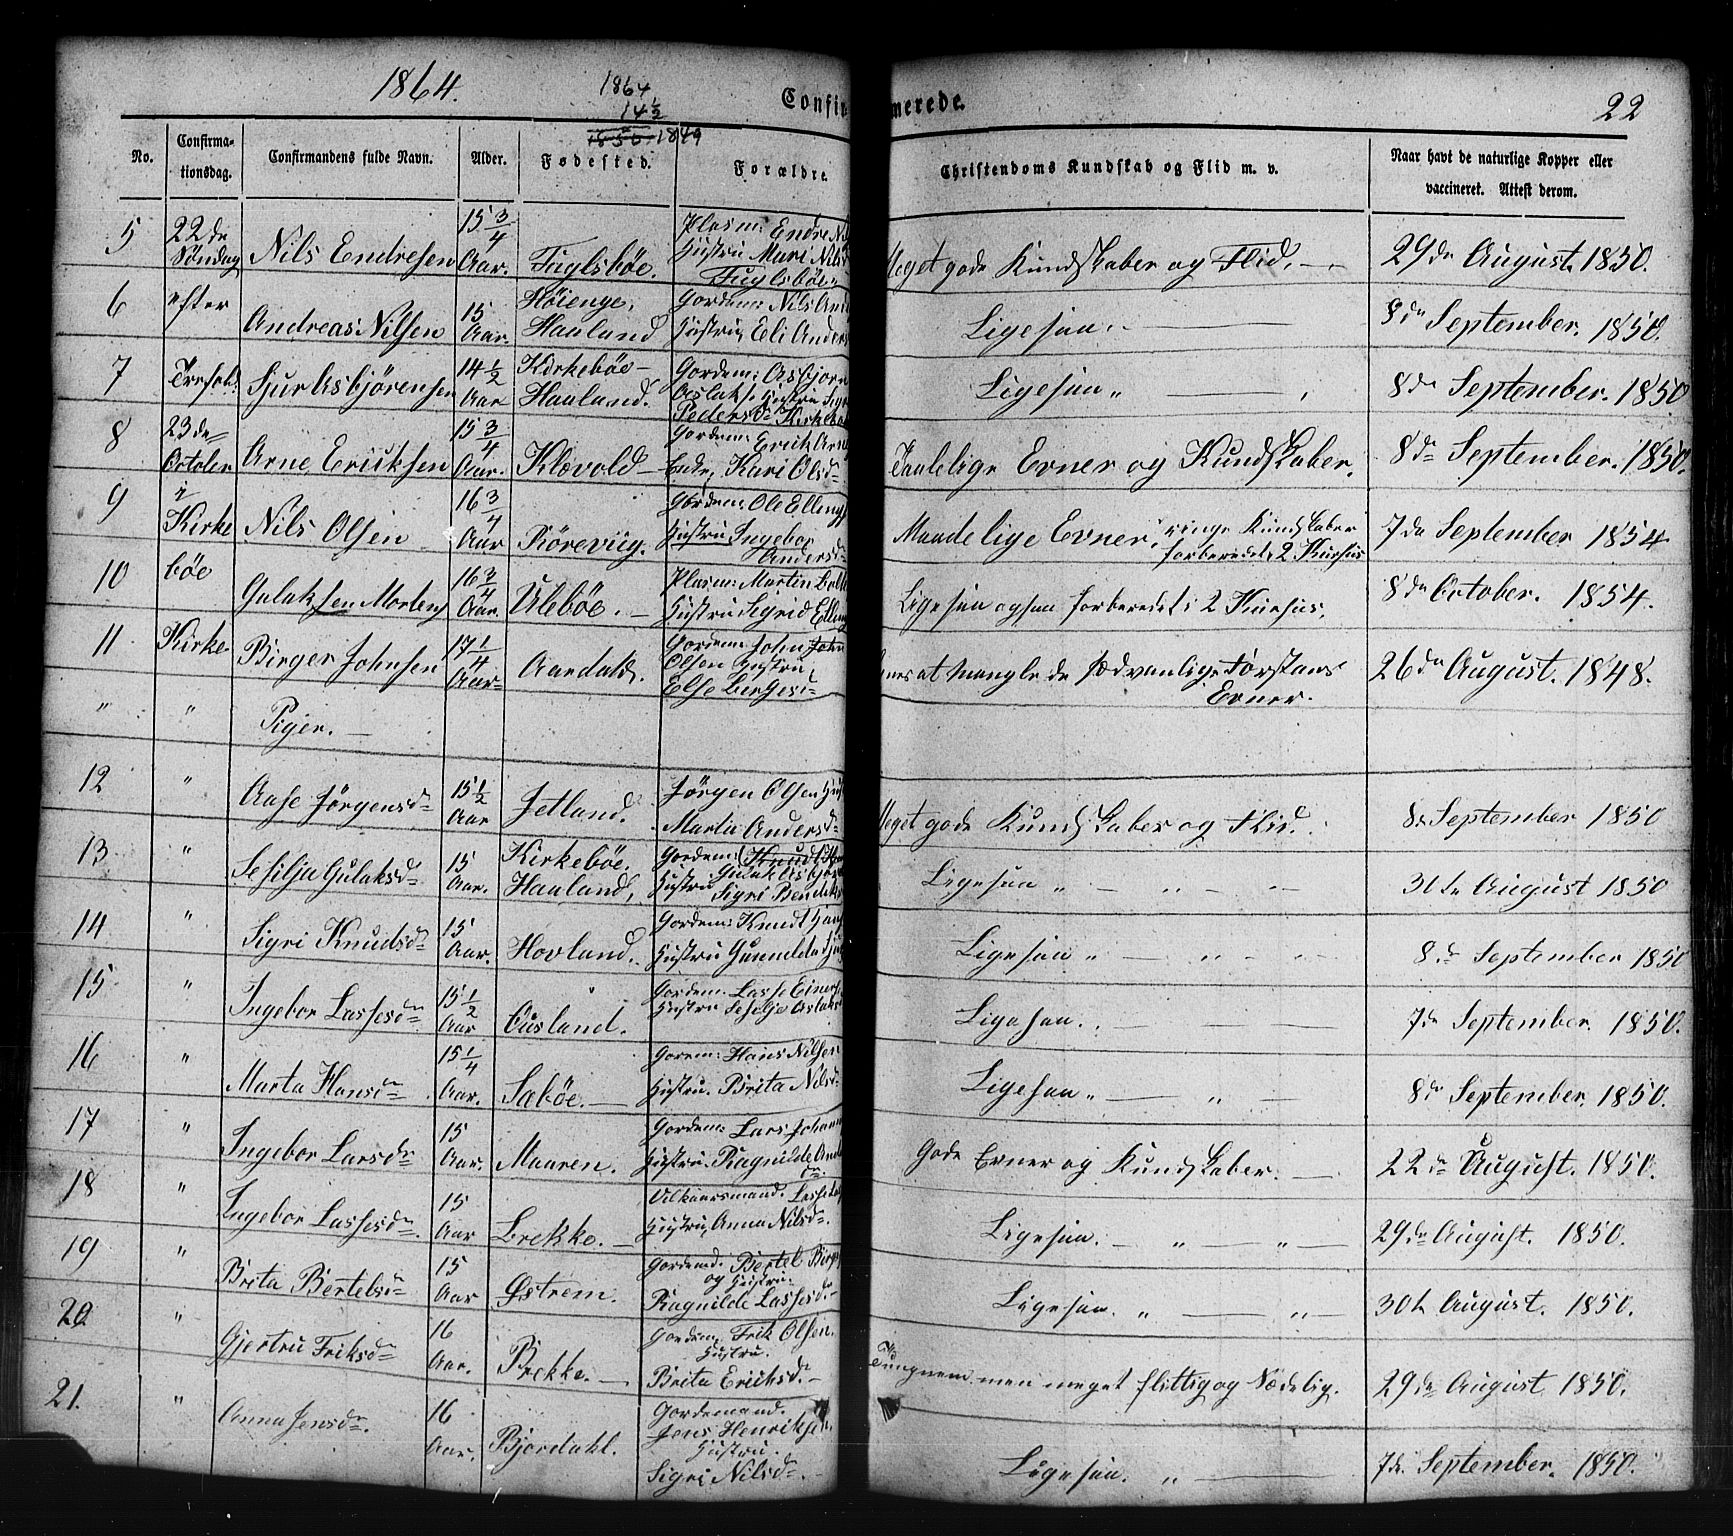 1864.
1864
14 1/2
1850 1849
Confir
merede.
22
No.
Confirma-
tionsdag.
Confirmandens fulde Navn.
Alder.
Fødested.
Forældre.
Christendoms Kundskab og Flid m. v.
Naar havt de naturlige Kopper eller
vaccineret. Attest derom.
5
22de
Søndag
Nils Endresen
15 3/4
Aar.
Fuglsbøe.
Plasm: Endre
Hustru Mari Nils
Fuglsbøe.
Meget gode Kundskaber og Flid.
29de August. 1850.
6
efter
Andreas Nilsen
15
Aar.
Høienge,
Haaland
Gordem: Nils And
Hustru, Eli Anders
Ligesaa.
8de September. 1850.
7
Trefold:
Sjur Asbjørensen
14 1/2
Aar
Kirkebøe
Haaland.
Gordem: Asbjørn
Aslaks: Hustru
Pedersd Kirkeb
Ligesaa "
8de September. 1850
8
23de
October
Arne Ericksen
15 3/4
Aar.
Klævold
Gordem: Erick Arn
Kari Olsd
Taalelige Evner og Kundskaber.
8de September. 1850.
9
i
Kirke
Nils Olsen
16 3/4
Aar
Røreviig.
Gordem: Ole Elling
Hustru Ingebor
Andersd
Maadelige Evner, ringe Kundskaber
forberedet i 2 Kursus
7de September 1854
10
bøe
Gulaksen Mortens
16 3/4
Aar.
Ulebøe.
Plasm: Martin
Hustru Sigrid Elling
Ligesaa ogsaa forberedet i 2 Kursus.
8de October. 1854.
11
Kirke
Birger Johnsen
17 1/4
Aar
Aardald.
Gordem: John John
Olsen Hustru
Else Børgesd
at mangle de sædvanlige Forstans
Evner.
26de August. 1848.
" "
Piger.
12
"
Aase Jørgensd
15 1/2
Aar
Jetland.
Jørgen Olsen
Marta Andersd
Meget gode Kundskaber og Flid.
8de September 1850
13
"
Sesilja Gulaksd
15
Aar.
Kirkebøe,
Haaland,
Gordem: Knudt
Gulak Asbjør
Hustru Sigri Bendiks
Ligesaa "
31te August 1850
14
"
Sigri Knudsd
15
Aar.
Hovland.
Gordem: Knudt Hans
Hustru Gunnilda
Ligesaa "
8de September 1850
15
"
Ingebor Lassesd
15 1/2
Aar
Ousland.
Gordem. Lasse Einers
Hustru Sesilje Aslaks
Ligesaa.
7de September. 1850.
16
"
Marta Hansd
15 1/4
Aar.
Sæbøe.
Gorem: Hans Nilsen
Hustru. Brita Nilsd
Ligesaa "
8de September. 1850.
17
"
Ingebor Larsd
15
Aar.
Maaren.
Gordem: Lars Johann
Hustru. Ragnilde And
Gode Evner og Kundskaber.
22de August. 1850.
18
"
Ingebor Lassesd
15
Aar
Brekke.
Vilkaarsmand. Lasse
Hustru, Anna Nilsd.
Ligesaa. " "
29de August. 1850.
19
"
Brita Bertelsd
15
Aar
Østrem.
Gordemd. Bertel Birg
og Hustru.
Ragnilde Lassesd.
Ligesaa. " "
30te August. 1850.
20
"
Gjertru Eriksd
16
Aar.
Brekke.
Gordem: Erik Olsen.
Hustru.
Brita Ericksd.
Tungnem. men meget flittig og Sædelig.
29de August 1850.
21.
"
Anna Jensd.
16
Aar.
Bjordahl.
Gordemand.
Jens Henriksen
Hustru.
Sigri Nilsd.
Ligesaa. "
7de September. 1850.